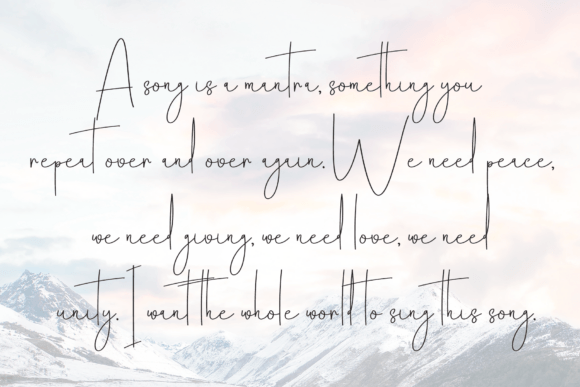 A song is a mantra, something you
repeat over and over again. We need peace,
we need giving, we need love, we need
unity. I want the whole world to sing this song.